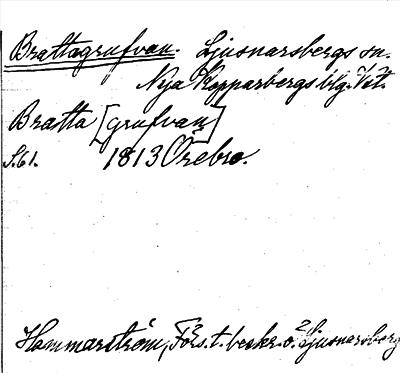 Brattagrufvan. Ljusnarsbergs sn.
Nya Kopparbergs blg. Vstm.
Bratta [grufvan]
S. 61. 1813 Örebro.
Hammarström, Förs. t. beskr. ö. Ljusnarsberg